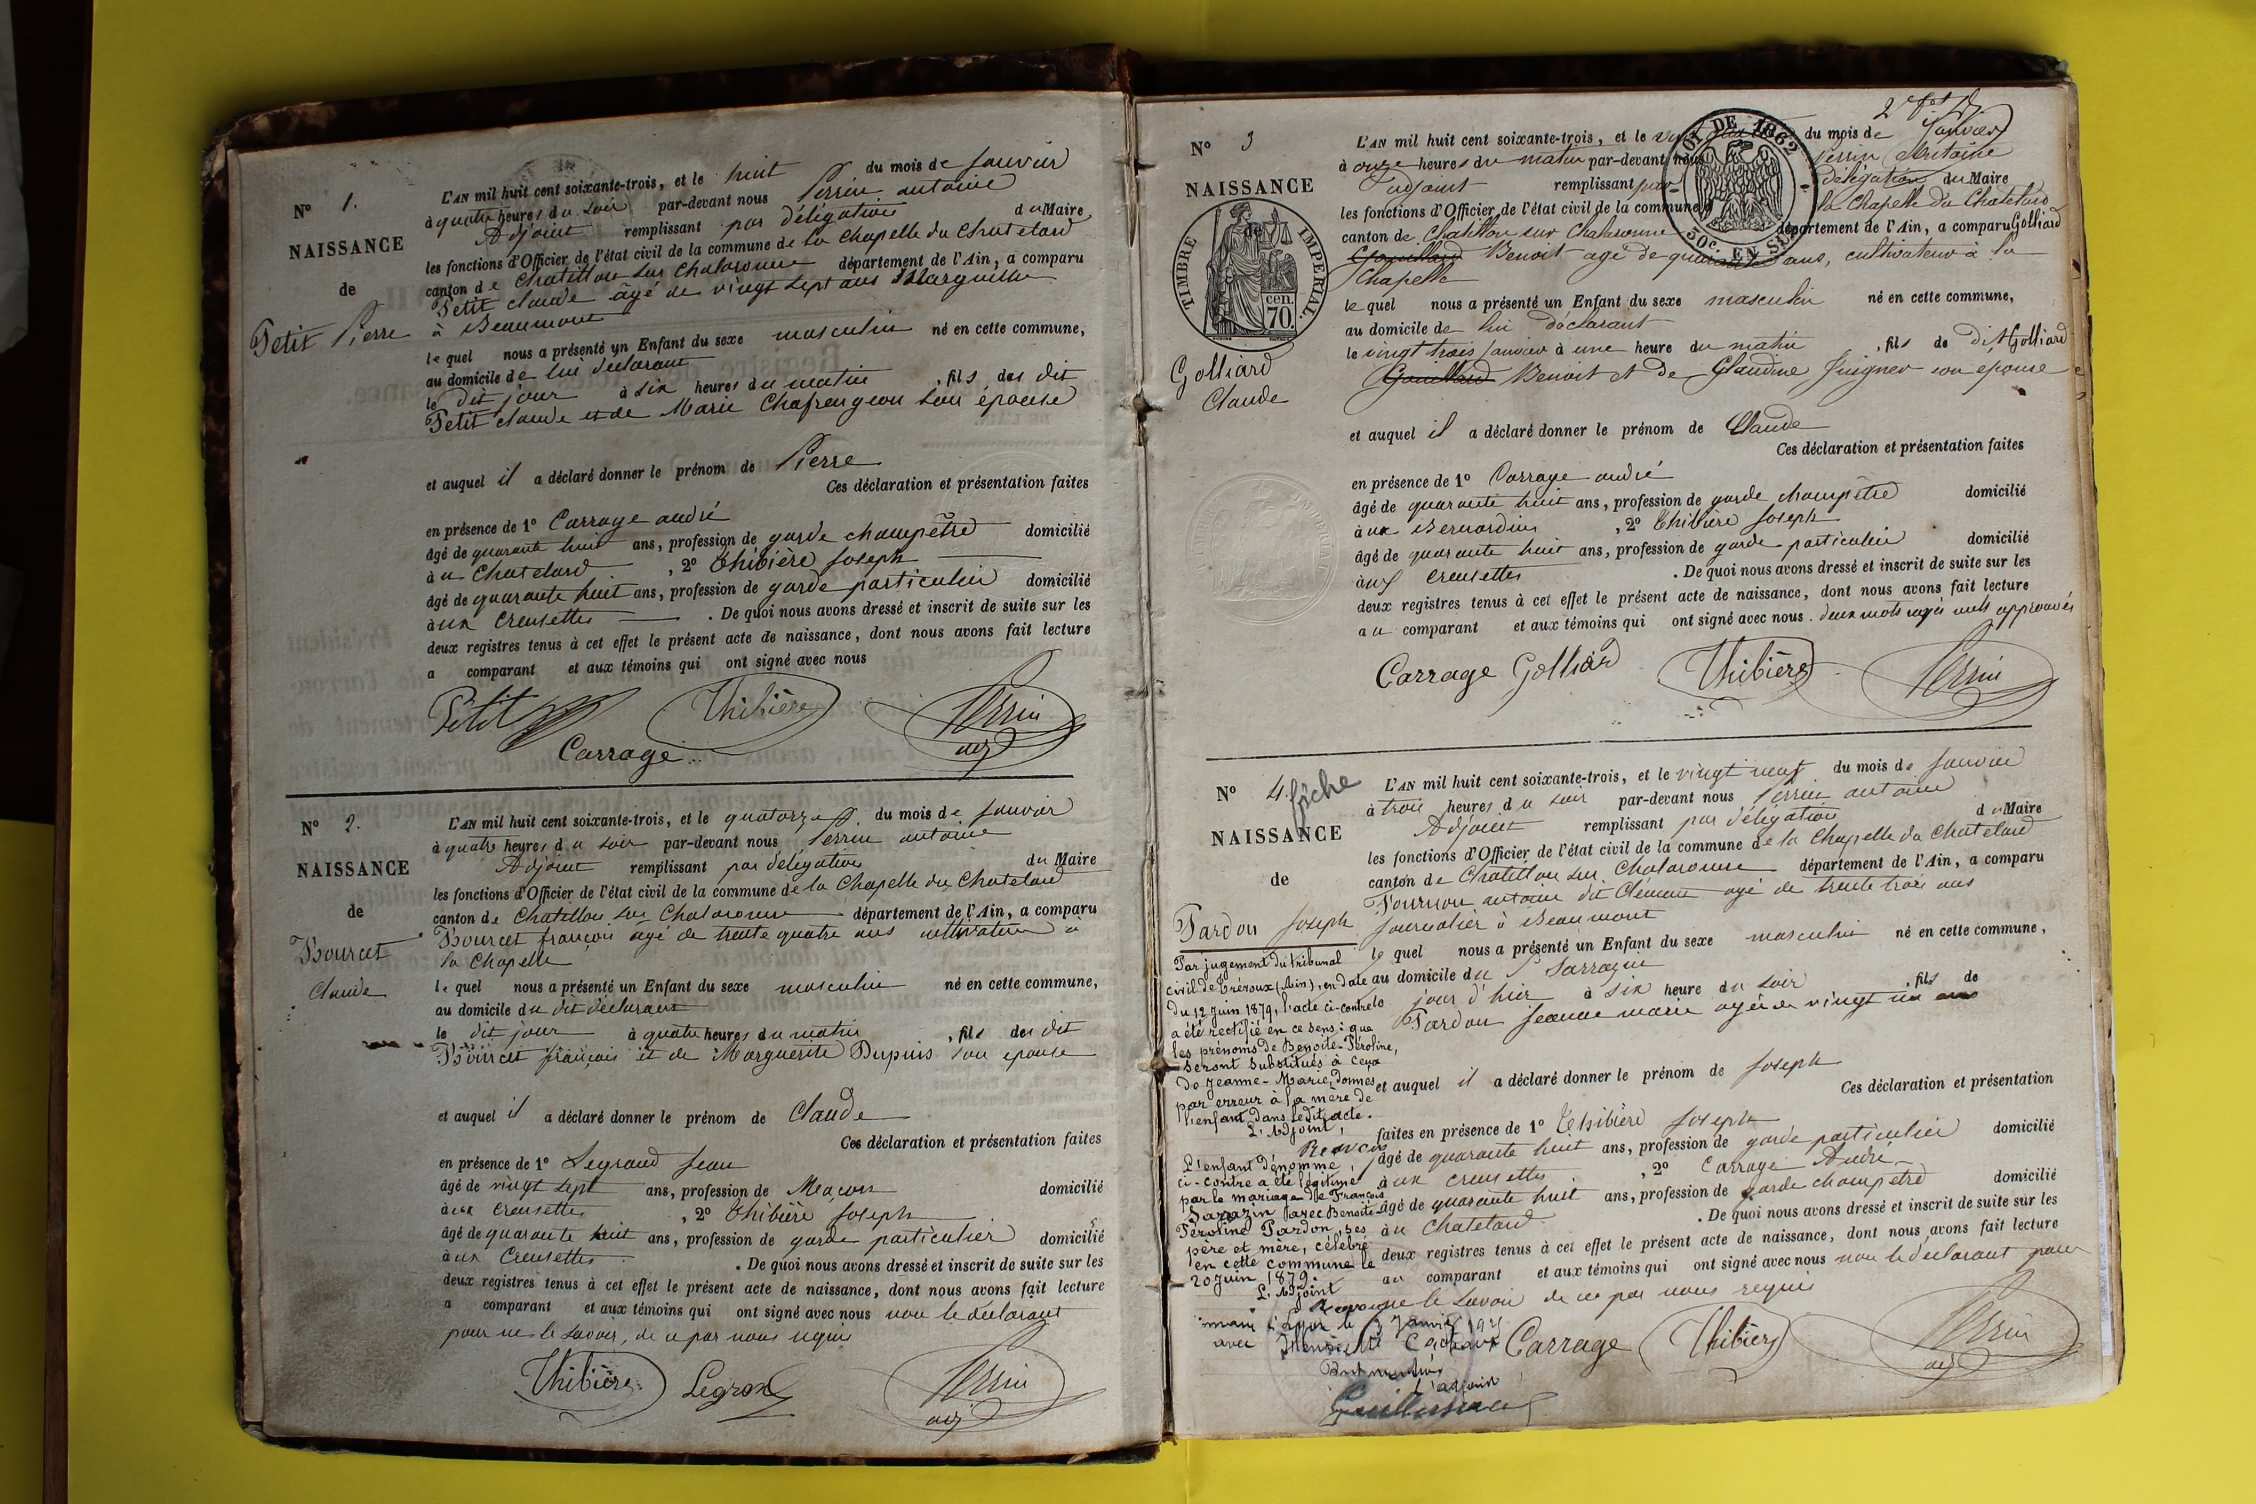 N° 1.
NAISSANCE
de
Petit Pierre
L'AN mil huit cent soixante-trois, et le huit du mois de Janvier
à quatre heures du soir par-devant nous Perrin antoine
Adjoint remplissant par délégation du Maire
les fonctions d'Officier de l'état civil de la commune de la Chapelle du Chatelard
canton de Chatillon sur Chalaronne département de l'Ain, a comparu
Petit claude âgé de vingt sept ans Marguillier
à Beaumont
le quel nous a présenté un Enfant du sexe masculin né en cette commune,
au domicile de lui déclarant
le dit jour à six heures du matin, fils des dit
Petit claude et de Marie Chafrengeon son épouse
et auquel il a déclaré donner le prénom de Pierre
Ces déclaration et présentation faites
en présence de 1° Carrage andré
âgé de quarante huit ans, profession de garde champêtre domicilié
au Chatelard, 2° Thibière Joseph
âgé de quarante huit ans, profession de garde particulier domicilié
aux Creusettes. De quoi nous avons dressé et inscrit de suite sur les
deux registres tenus à cet effet le présent acte de naissance, dont nous avons fait lecture
a comparant et aux témoins qui ont signé avec nous
Petit Thibière Perrin
Carrage adj
N° 2.
NAISSANCE
de
Bourcet
Claude
L'AN mil huit cent soixante-trois, et le quatorze du mois de Janvier
à quatre heures du soir par-devant nous Perrin antoine
Adjoint remplissant par délégation du Maire
les fonctions d'Officier de l'état civil de la commune de la Chapelle du Chatelard
canton de Chatillon sur Chalaronne département de l'Ain, a comparu
Bourcet françois agé de trente quatre ans cultivateur à
la Chapelle
le quel nous a présenté un Enfant du sexe masculin né en cette commune,
au domicile du dit déclarant
le dit jour à quatre heures du matin, fils des dit
Bourcet françois et de Marguerite Dupuis son epouse
et auquel il a déclaré donner le prénom de Claude
Ces déclaration et présentation faites
en présence de 1° Legrand Jean
âgé de vingt sept ans, profession de Maçon domicilié
aux creusettes, 2° Thibière Joseph
âgé de quarante huit ans, profession de garde particulier domicilié
aux Creusettes. De quoi nous avons dressé et inscrit de suite sur les
deux registres tenus à cet effet le présent acte de naissance, dont nous avons fait lecture
a comparant et aux témoins qui ont signé avec nous non le déclarant
pour ne le savoir, de ce par nous requis
Thibière Legrand Perrin
adj
N° 3
NAISSANCE
de
TIMBRE IMPERIAL
cen. 70.
Golliard
Claude
LOI DE 1862
50c. EN SUS
L'AN mil huit cent soixante-trois, et le vingt du mois de Janvier
à onze heures du matin par-devant nous Perrin Antoine
adjoint remplissant par délégation du Maire
les fonctions d'Officier de l'état civil de la commune la Chapelle du Chatelard
canton de Chatillon sur Chalaronne département de l'Ain, a comparu Golliard
Gouillard Benoit agé de quarante ans, cultivateur à la
Chapelle
le quel nous a présenté un Enfant du sexe masculin né en cette commune,
au domicile de lui déclarant
le vingt trois Janvier à une heure du matin, fils de dit Golliard
Gouillard Benoit et de Claudine Juigner son épouse
et auquel il a déclaré donner le prénom de Claude
Ces déclaration et présentation faites
en présence de 1° Carrage andré
âgé de quarante huit ans, profession de garde champêtre domicilié
aux Bernardins, 2° Thibière Joseph
âgé de quarante huit ans, profession de garde particulier domicilié
aux Creusettes. De quoi nous avons dressé et inscrit de suite sur les
deux registres tenus à cet effet le présent acte de naissance, dont nous avons fait lecture
au comparant et aux témoins qui ont signé avec nous. deux mots rayés nuls approuvés
Carrage Golliard Thibière Perrin
N° 4. fiche
NAISSANCE
de
Pardon Joseph
L'AN mil huit cent soixante-trois, et le vingt neuf du mois de Janvier
à trois heures du soir par-devant nous Perrin antoine
Adjoint remplissant par délégation du Maire
les fonctions d'Officier de l'état civil de la commune de la Chapelle du Chatelard
canton de Chatillon sur Chalaronne département de l'Ain, a comparu
Fournon antoine dit Clément agé de trente trois ans
Journalier à Beaumont
le quel nous a présenté un Enfant du sexe masculin né en cette commune,
au domicile du Sr Sarrazin
le jour d'hier à six heure du soir, fils de
Pardon Jeanne marie agée de vingt un ans
et auquel il a déclaré donner le prénom de Joseph
Ces déclaration et présentation
faites en présence de 1° Thibière Joseph
âgé de quarante huit ans, profession de garde particulier domicilié
aux creusettes, 2° Carrage André
âgé de quarante huit ans, profession de garde champêtre domicilié
au Chatelard. De quoi nous avons dressé et inscrit de suite sur les
deux registres tenus à cet effet le présent acte de naissance, dont nous avons fait lecture
au comparant et aux témoins qui ont signé avec nous non le déclarant pour
ne le savoir de ce par nous requis
Carrage Thibière Perrin
adj
Par jugement du tribunal
civil de Trévoux (Ain), en date
du 12 juin 1879, l'acte ci-contre
a été rectifié en ce sens: que
les prénoms de Benoite-Péroline,
seront substitués à ceux
de Jeanne-Marie, donnés
par erreur à la mère de
l'enfant dans ledit acte.
L'Adjoint,
L'enfant dénommé
ci-contre a été légitimé
par le mariage de François
Sarrazin avec Benoite
Péroline Pardon, ses
père et mère, célébré
en cette commune le
20 juin 1879.
L'Adjoint
marié à Lyon le Janvier
avec
l'adjoint